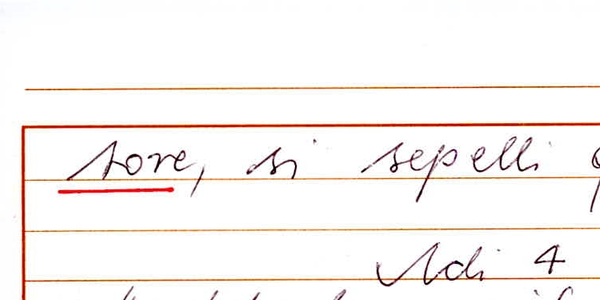 sore, si sepelli
Adi 4